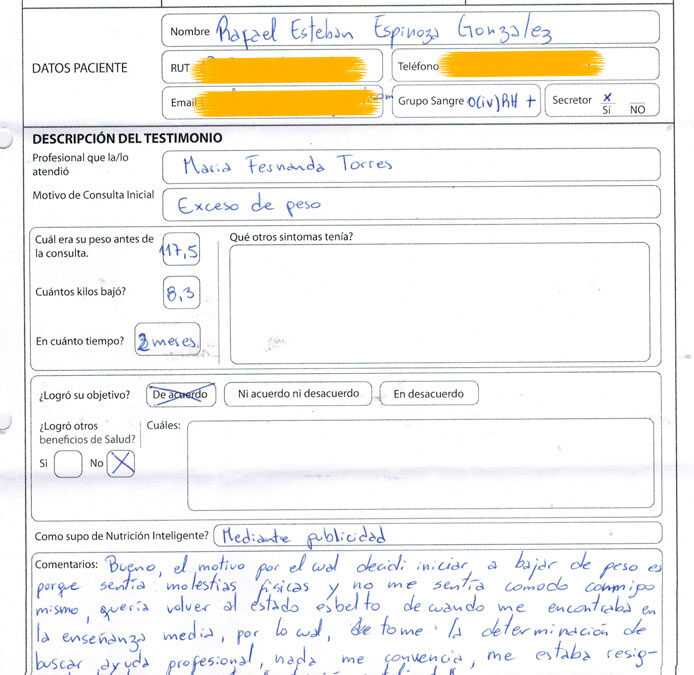 Nombre Rafael Esteban Espinoza Gonzalez
DATOS PACIENTE
RUT
Teléfono
Email com
Grupo Sangre O(iv)RH +
Secretor X
Sí NO
DESCRIPCIÓN DEL TESTIMONIO
Profesional que la/lo
atendió
Maria Fernanda Torres
Motivo de Consulta Inicial
Exceso de peso
Cuál era su peso antes de
la consulta.
117,5
Qué otros sintomas tenía?
Cuántos kilos bajó?
8,3
En cuánto tiempo?
meses
¿Logró su objetivo?
De acuerdo
Ni acuerdo ni desacuerdo
En desacuerdo
¿Logró otros
beneficios de Salud?
Cuáles:
Si
No X
Como supo de Nutrición Inteligente? Mediante publicidad
Comentarios: Bueno, el motivo por el wal decidi iniciar, a bajar de peso es
porque sentía molestias físicas y no me sentía comodo conmigo
mismo, quería volver al estado esbelto de wando me encontraba en
la enseñanza media, por lo wal, tome la determinación de
buscar ayuda profesional, nada me convencia, me estaba resig-